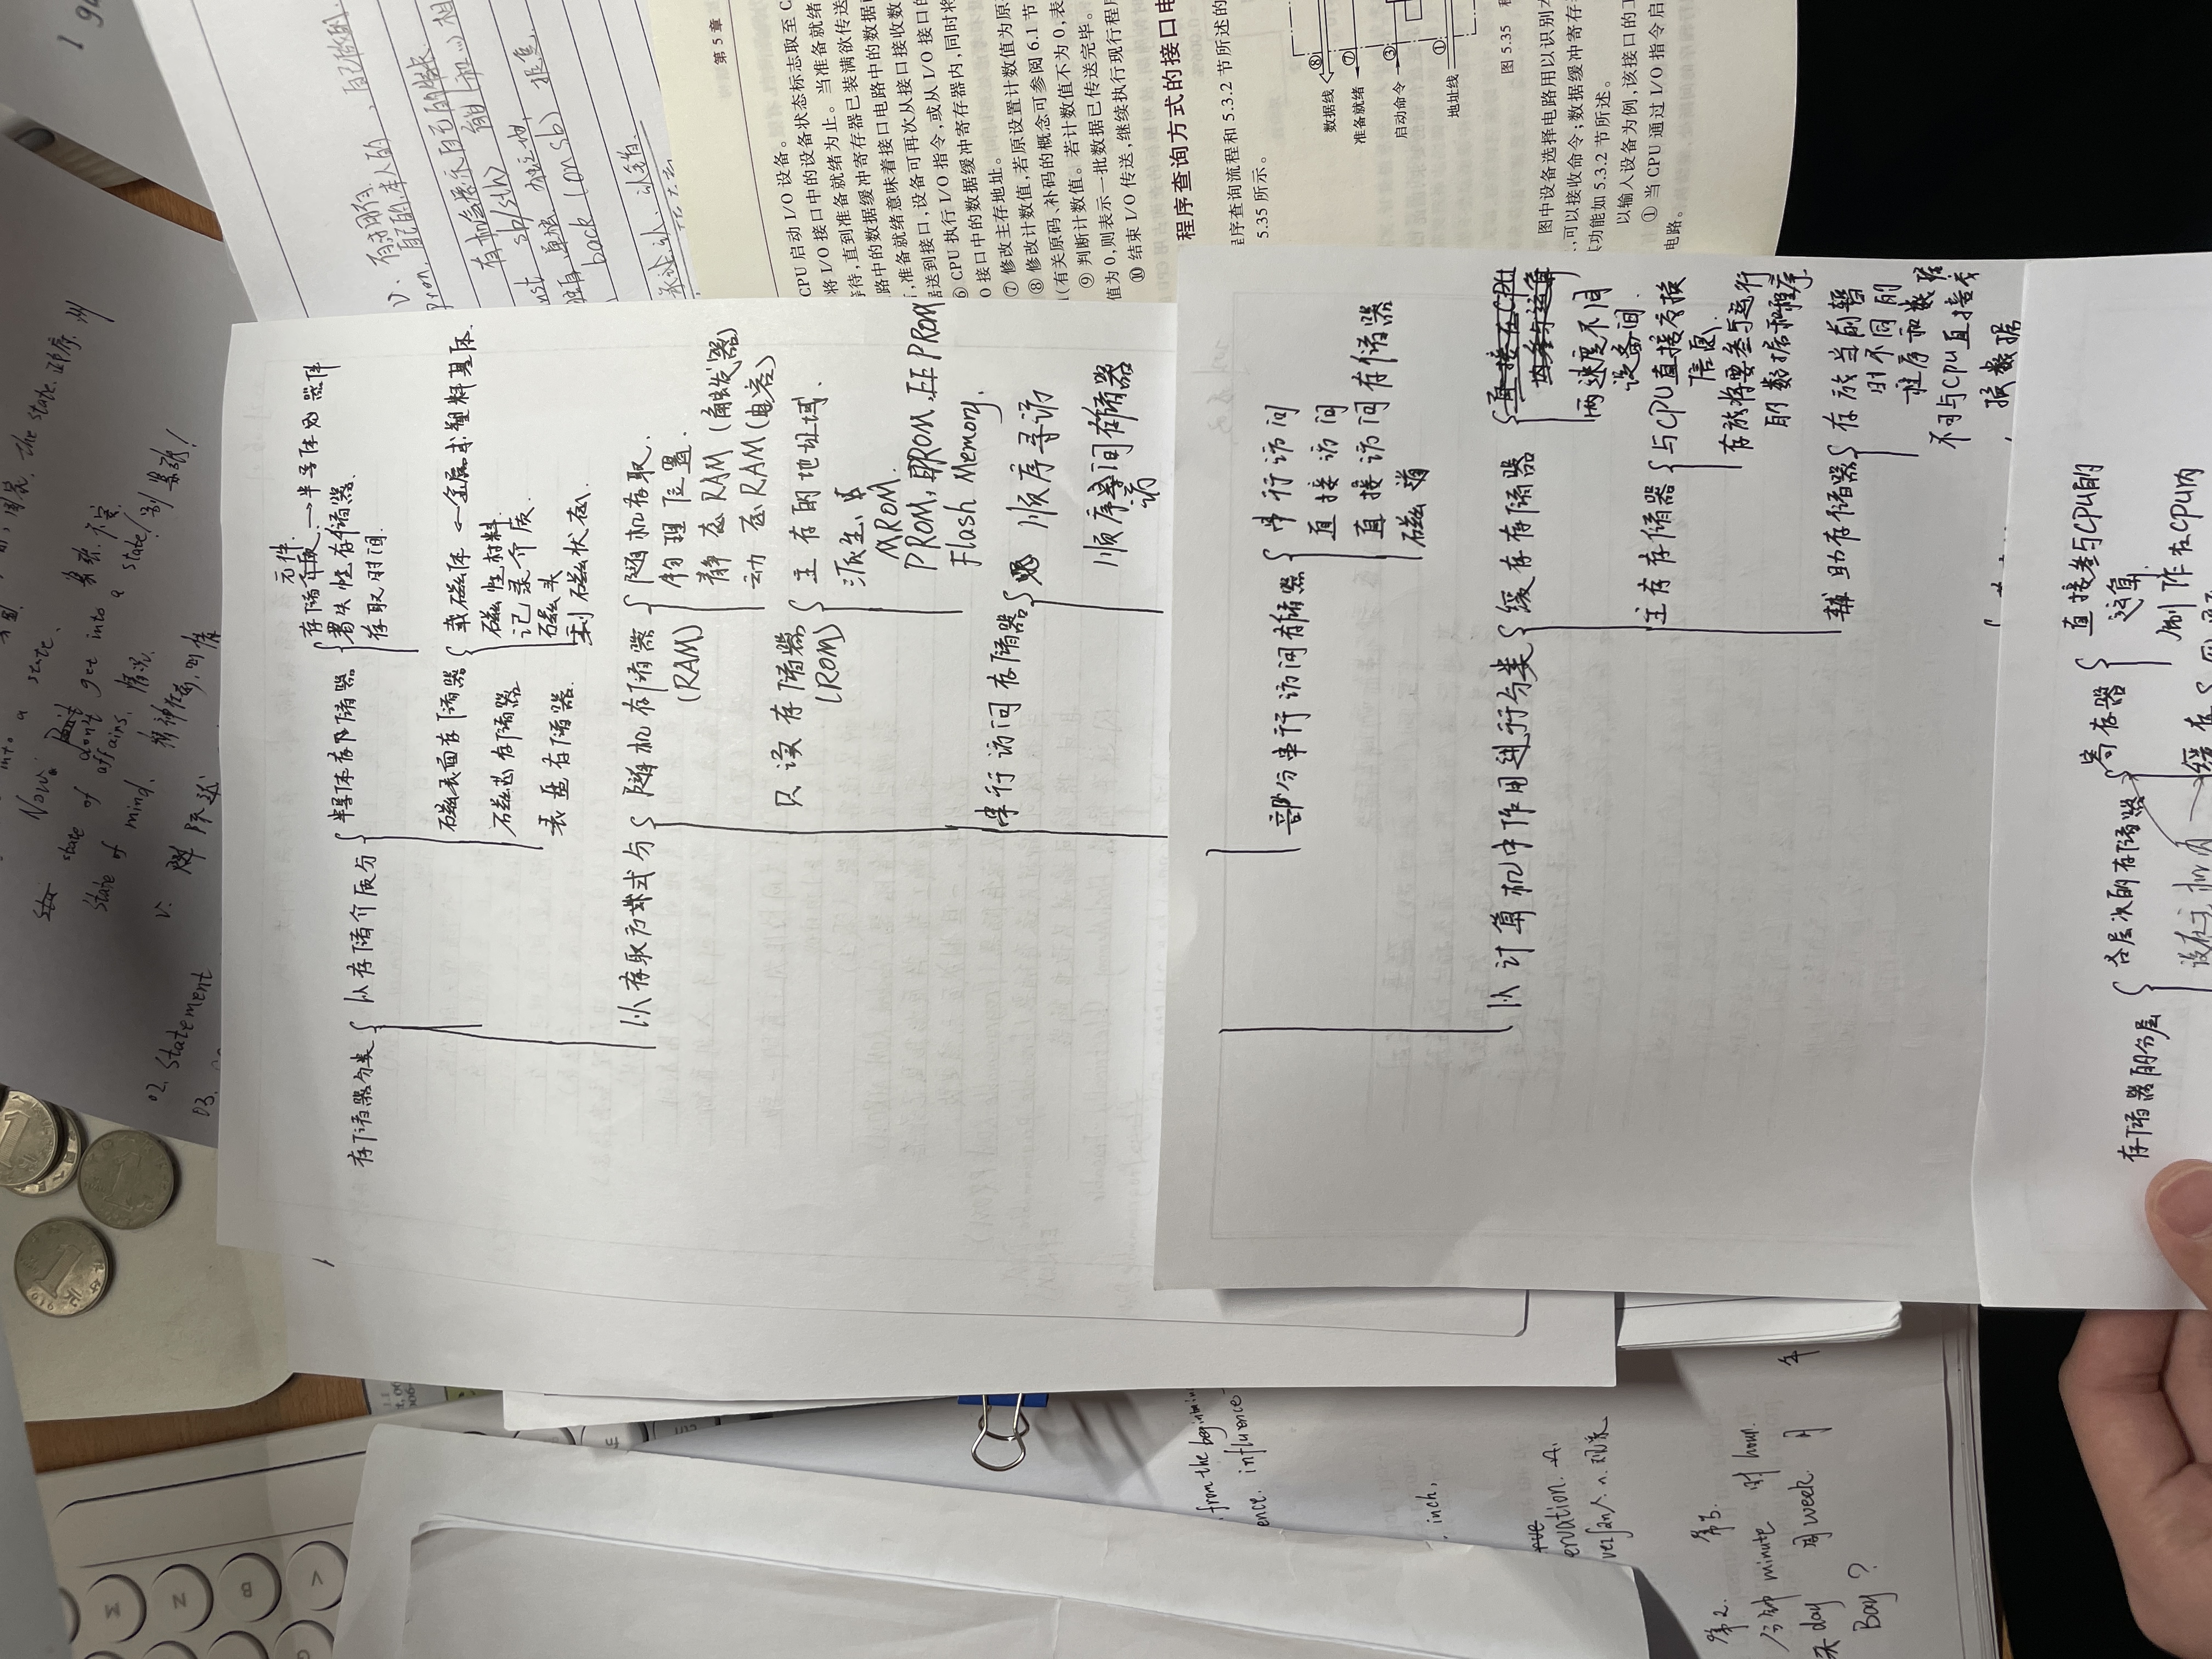 into a state.
the state. 政府. 州
Now. Don't get into a state! 别紧张!
紧张. 不安
state of affairs. 情况.
state of mind.
02. Statement
v. 陈述
03.
M
N
B
V
元件.
存储介质. → 半导体器件
存储器分类
以存储介质分
半导体存储器
易失性存储器.
存取时间.
磁表面存储器
载磁体 ← 金属或塑料基体.
磁性材料.
磁芯存储器
记录介质.
磁头
剩磁状态.
以存取方式分
随机存储器
(RAM)
随机存取.
物理位置.
静态RAM (触发器)
动态RAM (电容)
只读存储器
(ROM)
主存的地址域.
派生
MROM.
PROM, EPROM, EEPROM
Flash Memory.
串行访问存储器
顺序寻访
顺序访问存储器
部分串行访问存储器
串行访问
直接访问
直接访问存储器
磁道
以计算机中作用进行分类
缓存存储器
直接在CPU
内参与运算
两速度不同
设备间.
主存存储器
与CPU直接交换
信息.
存放将要参与运行
的数据和程序
辅助存储器
存放当前暂
时不同的
程序和数据
不可与CPU直接交
换数据
存储器的分层
各层次的存储器
寄存器
直接参与CPU的
运算.
制作在CPU内
设在主机内
缓存
v. 有
pron. 自己的. 本人的 , 自己做的.
有机会展示自己的特长
sb/sth)
back (on sb)
第 5 章
CPU 启动 I/O 设备。
将 I/O 接口中的设备状态标志取至 C
等待,直到准备就绪为止。当准备就绪
路中的数据缓冲寄存器已装满欲传送
,准备就绪意味着接口电路中的数据
送到接口,设备可再次从接口接收数
⑥ CPU 执行 I/O 指令,或从 I/O 接口的
O 接口中的数据缓冲寄存器内,同时将
⑦ 修改主存地址。
⑧ 修改计数值,若原设置计数值为原
(有关原码、补码的概念可参阅 6.1 节
⑨ 判断计数值。若计数值不为 0,表
值为 0,则表示一批数据已传送完毕。
⑩ 结束 I/O 传送,继续执行现行程序
程序查询方式的接口电
程序查询流程和 5.3.2 节所述的
5.35 所示。
数据线
⑧
准备就绪
⑦
启动命令
③
地址线
①
图 5.35
图中设备选择电路用以识别本
,可以接收命令;数据缓冲寄存
其功能如 5.3.2 节所述。
以输入设备为例,该接口的工
① 当 CPU 通过 I/O 指令启
电路。
from the beginning
ence. influence
inch,
ervation. n.
第2. 第3.
分钟 minute 时 hour.
天 day 周 week. 月 年
Bay ?